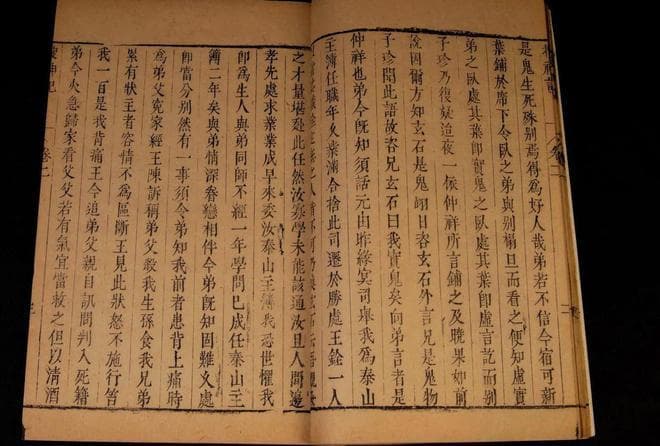 是鬼生死殊别焉得為好人哉弟若不信今宿可新
葉鋪於席下令臥之弟與别榻旦而看之便知虛實
弟之臥處其葉即實鬼之臥處其葉即虛言訖而别
子珍乃復疑這夜一依仲祥所言鋪之及曉果如前
說因爾方知玄石是鬼翊日咨玄石外言兄是鬼物
子珍聞此語故咨兄玄石曰我實鬼矣向弟言者是
仲祥也弟今既知須話元由昨緣冥司舉我為泰山
主簿任職年久案滿合捨此司遷於勝處王銓一人
之才量堪赴此任然汝寡學未能該通汝且人間邊
孝先處求業業成早來委汝泰山主簿我恐世懼我
即為生人與弟同師不經一年學問已成任泰山主
簿二年矣與弟情深眷戀相伴今弟既知固難久處
即當分别然有一事須令弟知我前者患背上痛時
為弟父寃家經王陳訴稱弟父殺我生孫食我兄弟
累有狀主者容情不為區斷王見此狀怒不施行笞
我一百是我背痛王今追弟父親自訊問判入死籍
弟今火急歸家看父父若有氣宜當救之但以清酒
搜神記 卷二